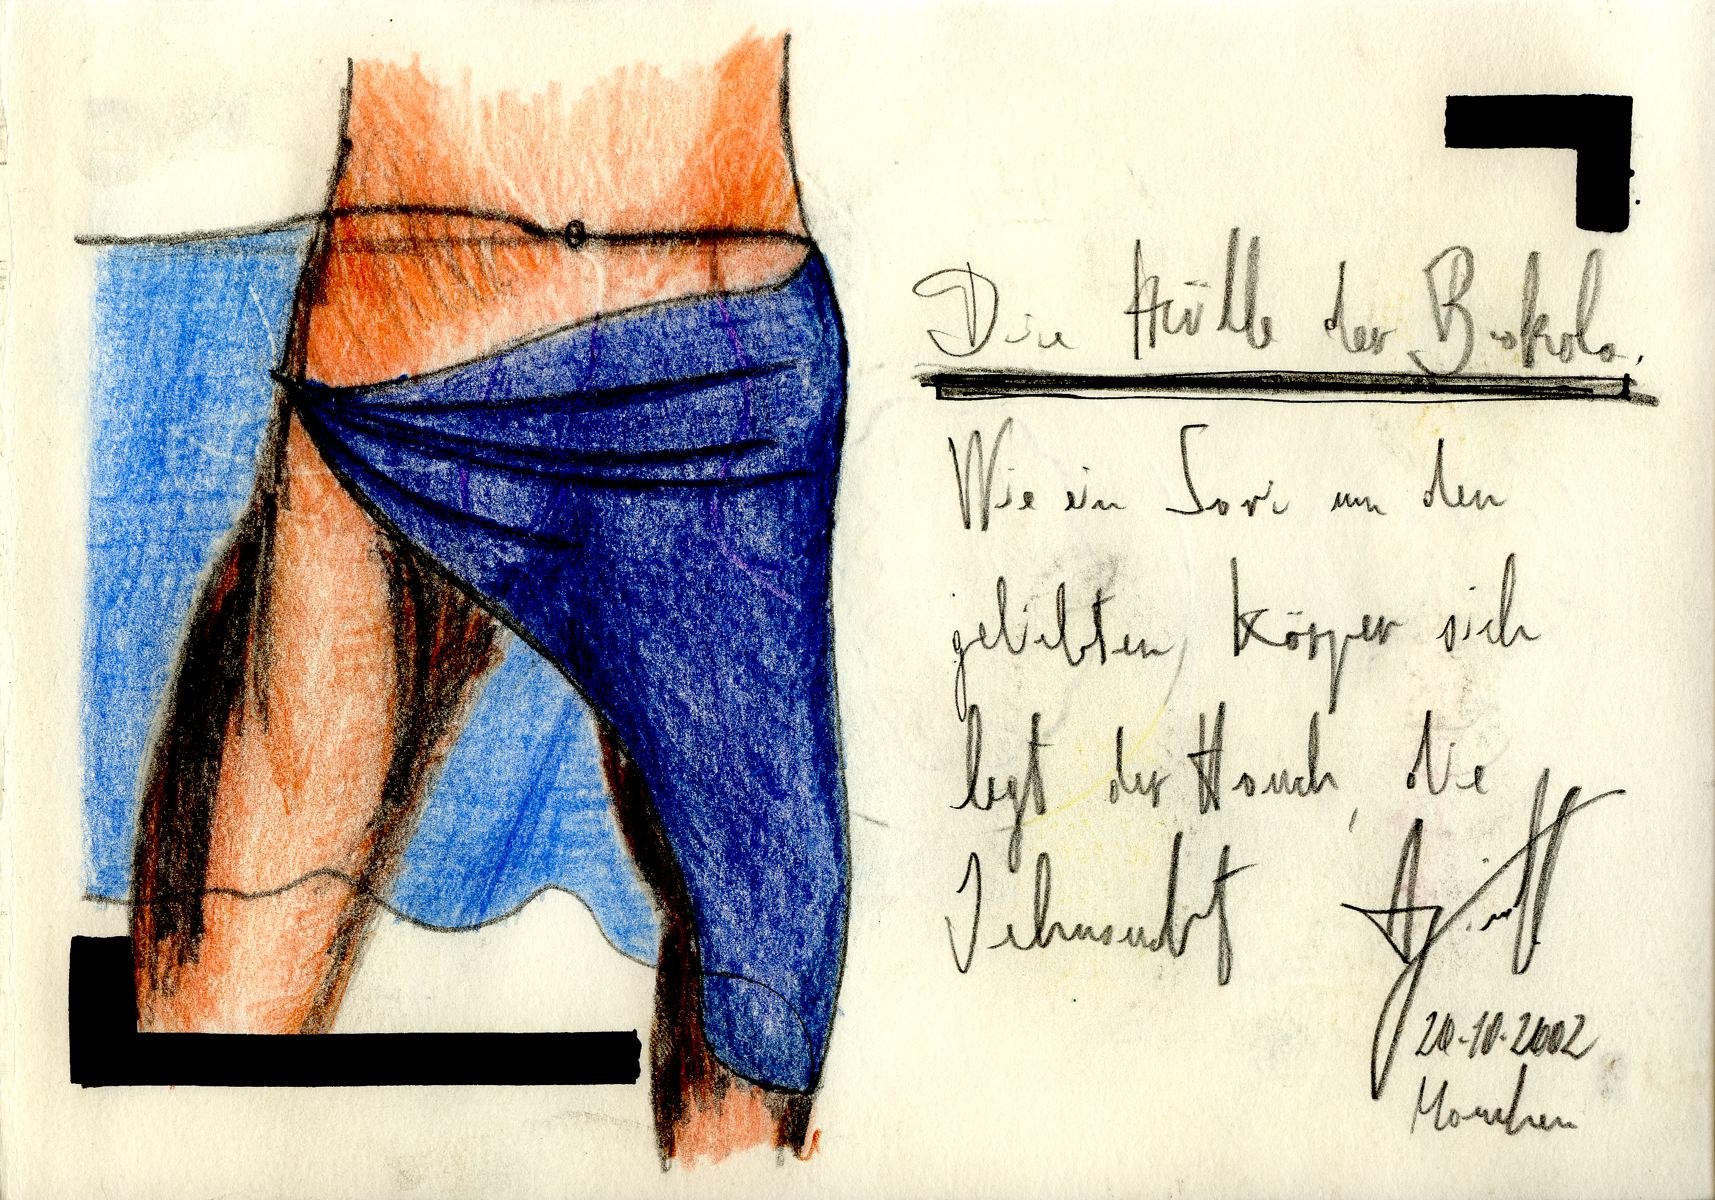 Die Hülle der
Wie ein Sari um den
geliebten Körper sich
legt der Hauch, die
Sehnsucht
20.10.2002
München